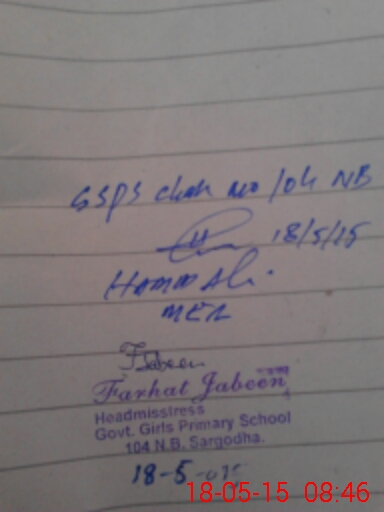 GSPS chak no 104 NB
18/5/15
Hammad Ali.
MEA
F Jabeen
Farhat Jabeen
Headmisstress
Govt. Girls Primary School
104 N.B. Sargodha.
18-5-015
18-05-15 08:46